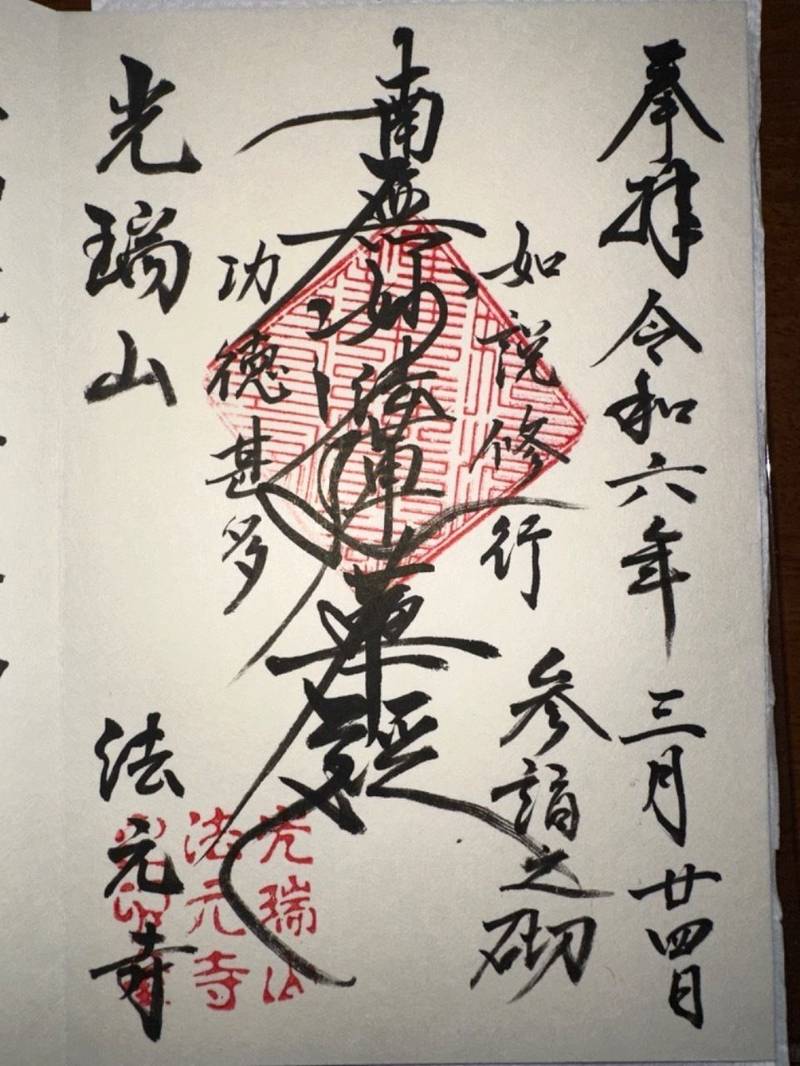 奉拝 令和六年 三月廿四日
参詣之砌
如説修行
南無妙法蓮華経
功德甚多
光瑞山
法元寺
光瑞山
法元寺